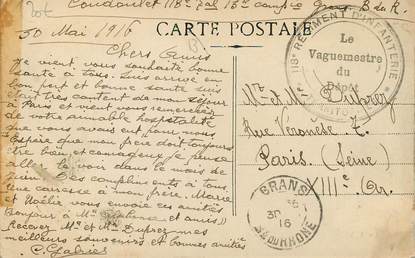 118e 7al 15e comp Grans B du R.
30 Mai 1916
CARTE POSTALE
Chers Amis
Je vient vous souhaité bonne
santé a tous. Suis arrivé en
bon port et bonne santé suis
très content de mon séjour
à Paris et vient vous remercier
de votre aimable hospitalité
que vous avais eut pour nous
Espère que mon frère doit toujours
être bien et courageux je pense
aller le voir dans le mois de
Juin. Des compliments à tous,
une caresse à mon frère. Marie
et Noëlie vous envoie ces amitiés
Bonjour à Mr et amis
Recevez Mr et Mme Duprez mes
meilleurs souvenirs et bonnes amitiés
C. Gabriel
118e REGIMENT D'INFANTERIE
Le
Vaguemestre
du
Dépôt
Mr et Mme Duprez
Rue Véronèse 7.
Paris. (Seine)
XIIIe Arr.
GRANS
30 -5
16
BS DU RHONE